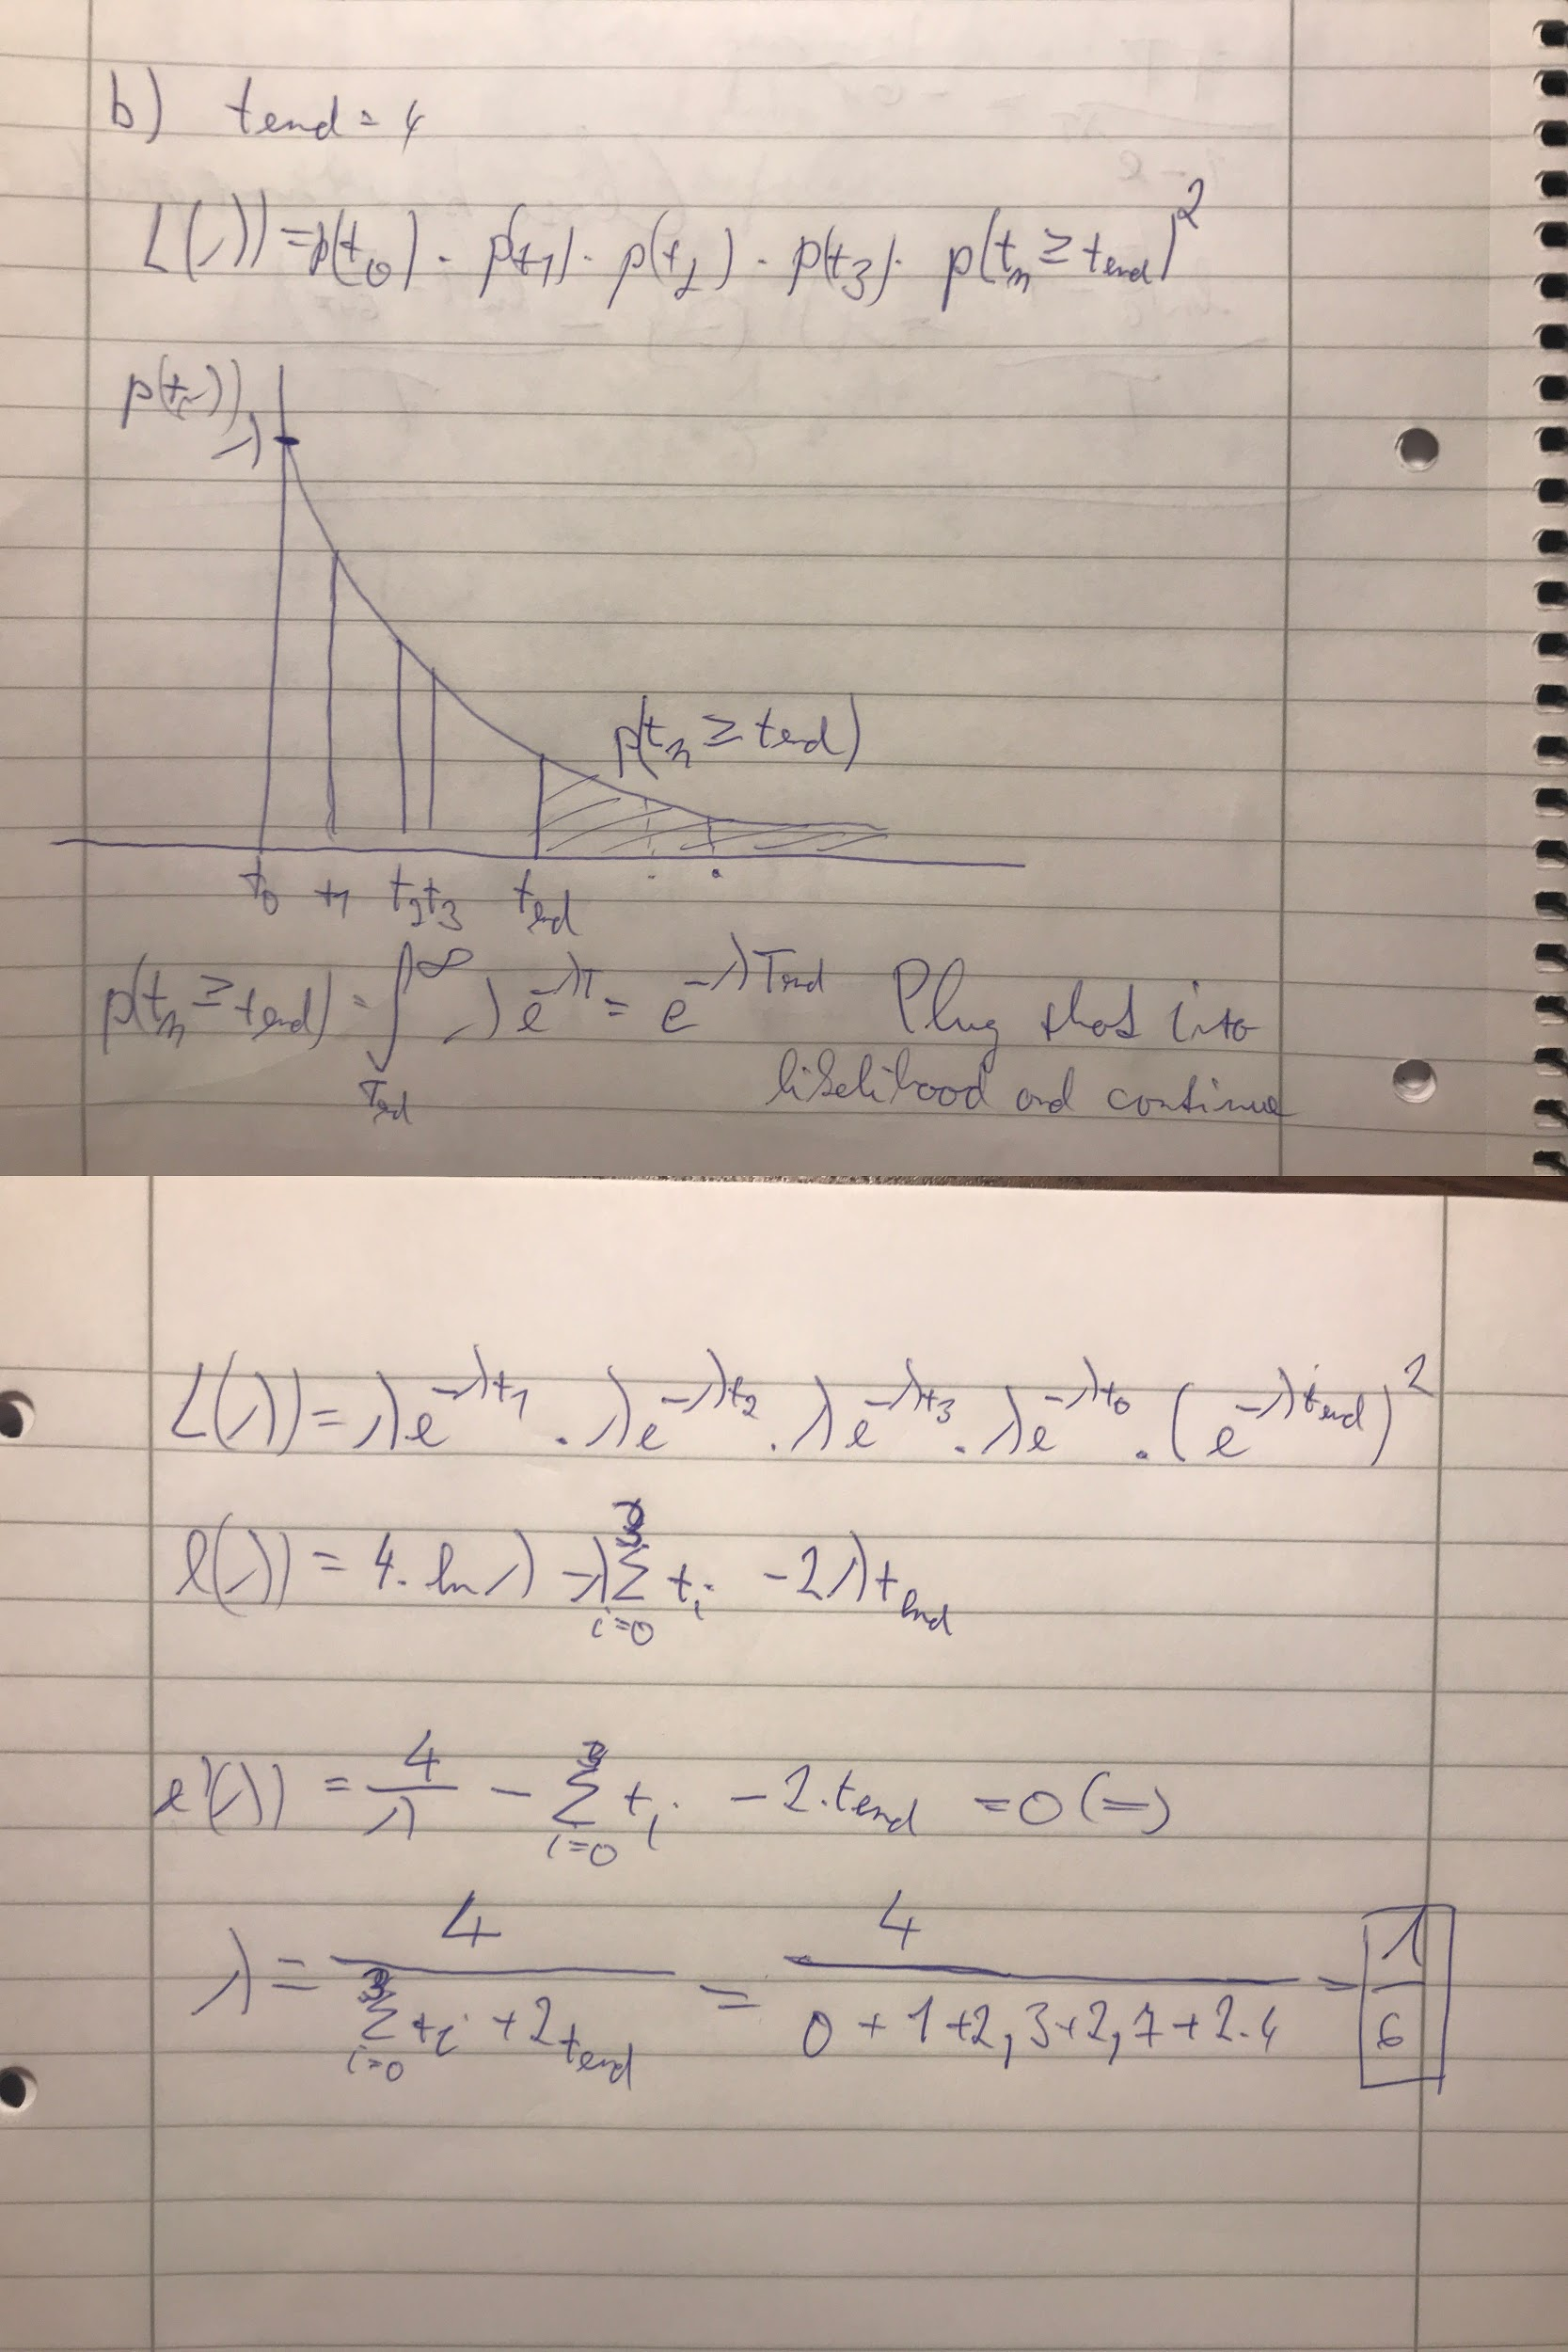 b) tend = 4
L(λ) = p(t0) · p(t1) · p(t2) · p(t3) · p(tn ≥ tend)²
p(ti)
λ
p(tn ≥ tend)
t0 t1 t2 t3 tend
p(tn ≥ tend) = ∫_Tend^∞ λ e^-λT = e^-λTend Plug that into
likelihood and continue
L(λ) = λe^-λt1 · λe^-λt2 · λe^-λt3 · λe^-λt0 · (e^-λtend)²
l(λ) = 4 · ln λ - λ Σ_i=0^3 ti - 2λtend
l'(λ) = 4/λ - Σ_i=0^3 ti - 2 · tend = 0 (=)
λ = 4/(Σ_i=0^3 ti + 2tend) = 4/(0 + 1 + 2,3 + 2,7 + 2·4) = 1/6